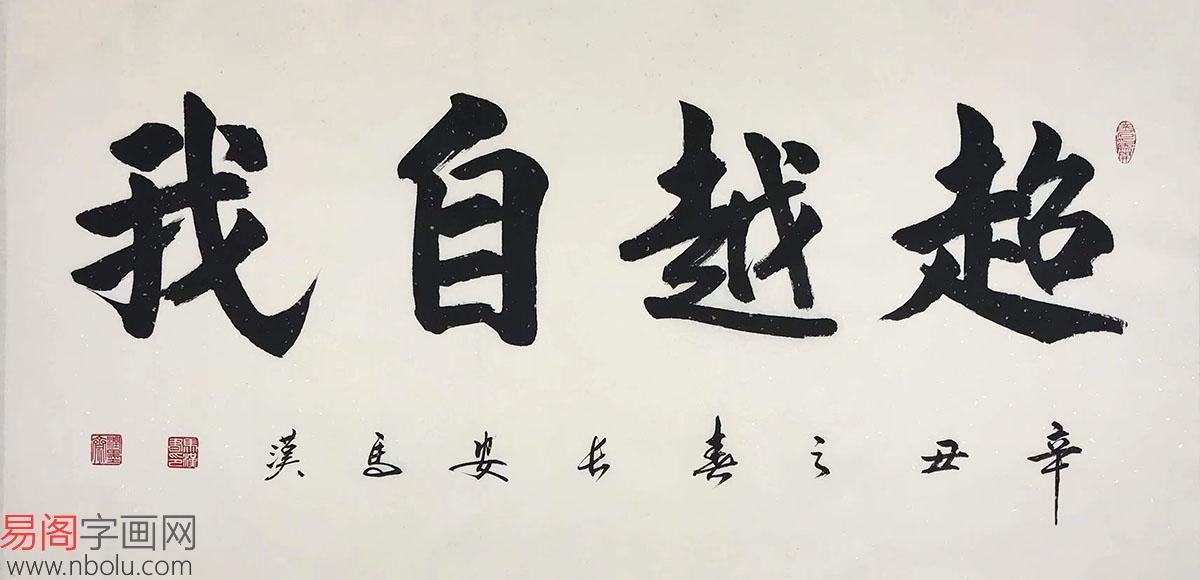 超越自我
辛丑之春长安马汉
易阁字画网
www.nbolu.com